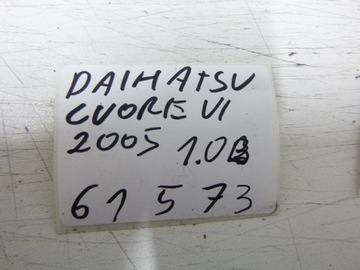 DAIHATSU
CUORE VI
2005 1.0B
61 5 73